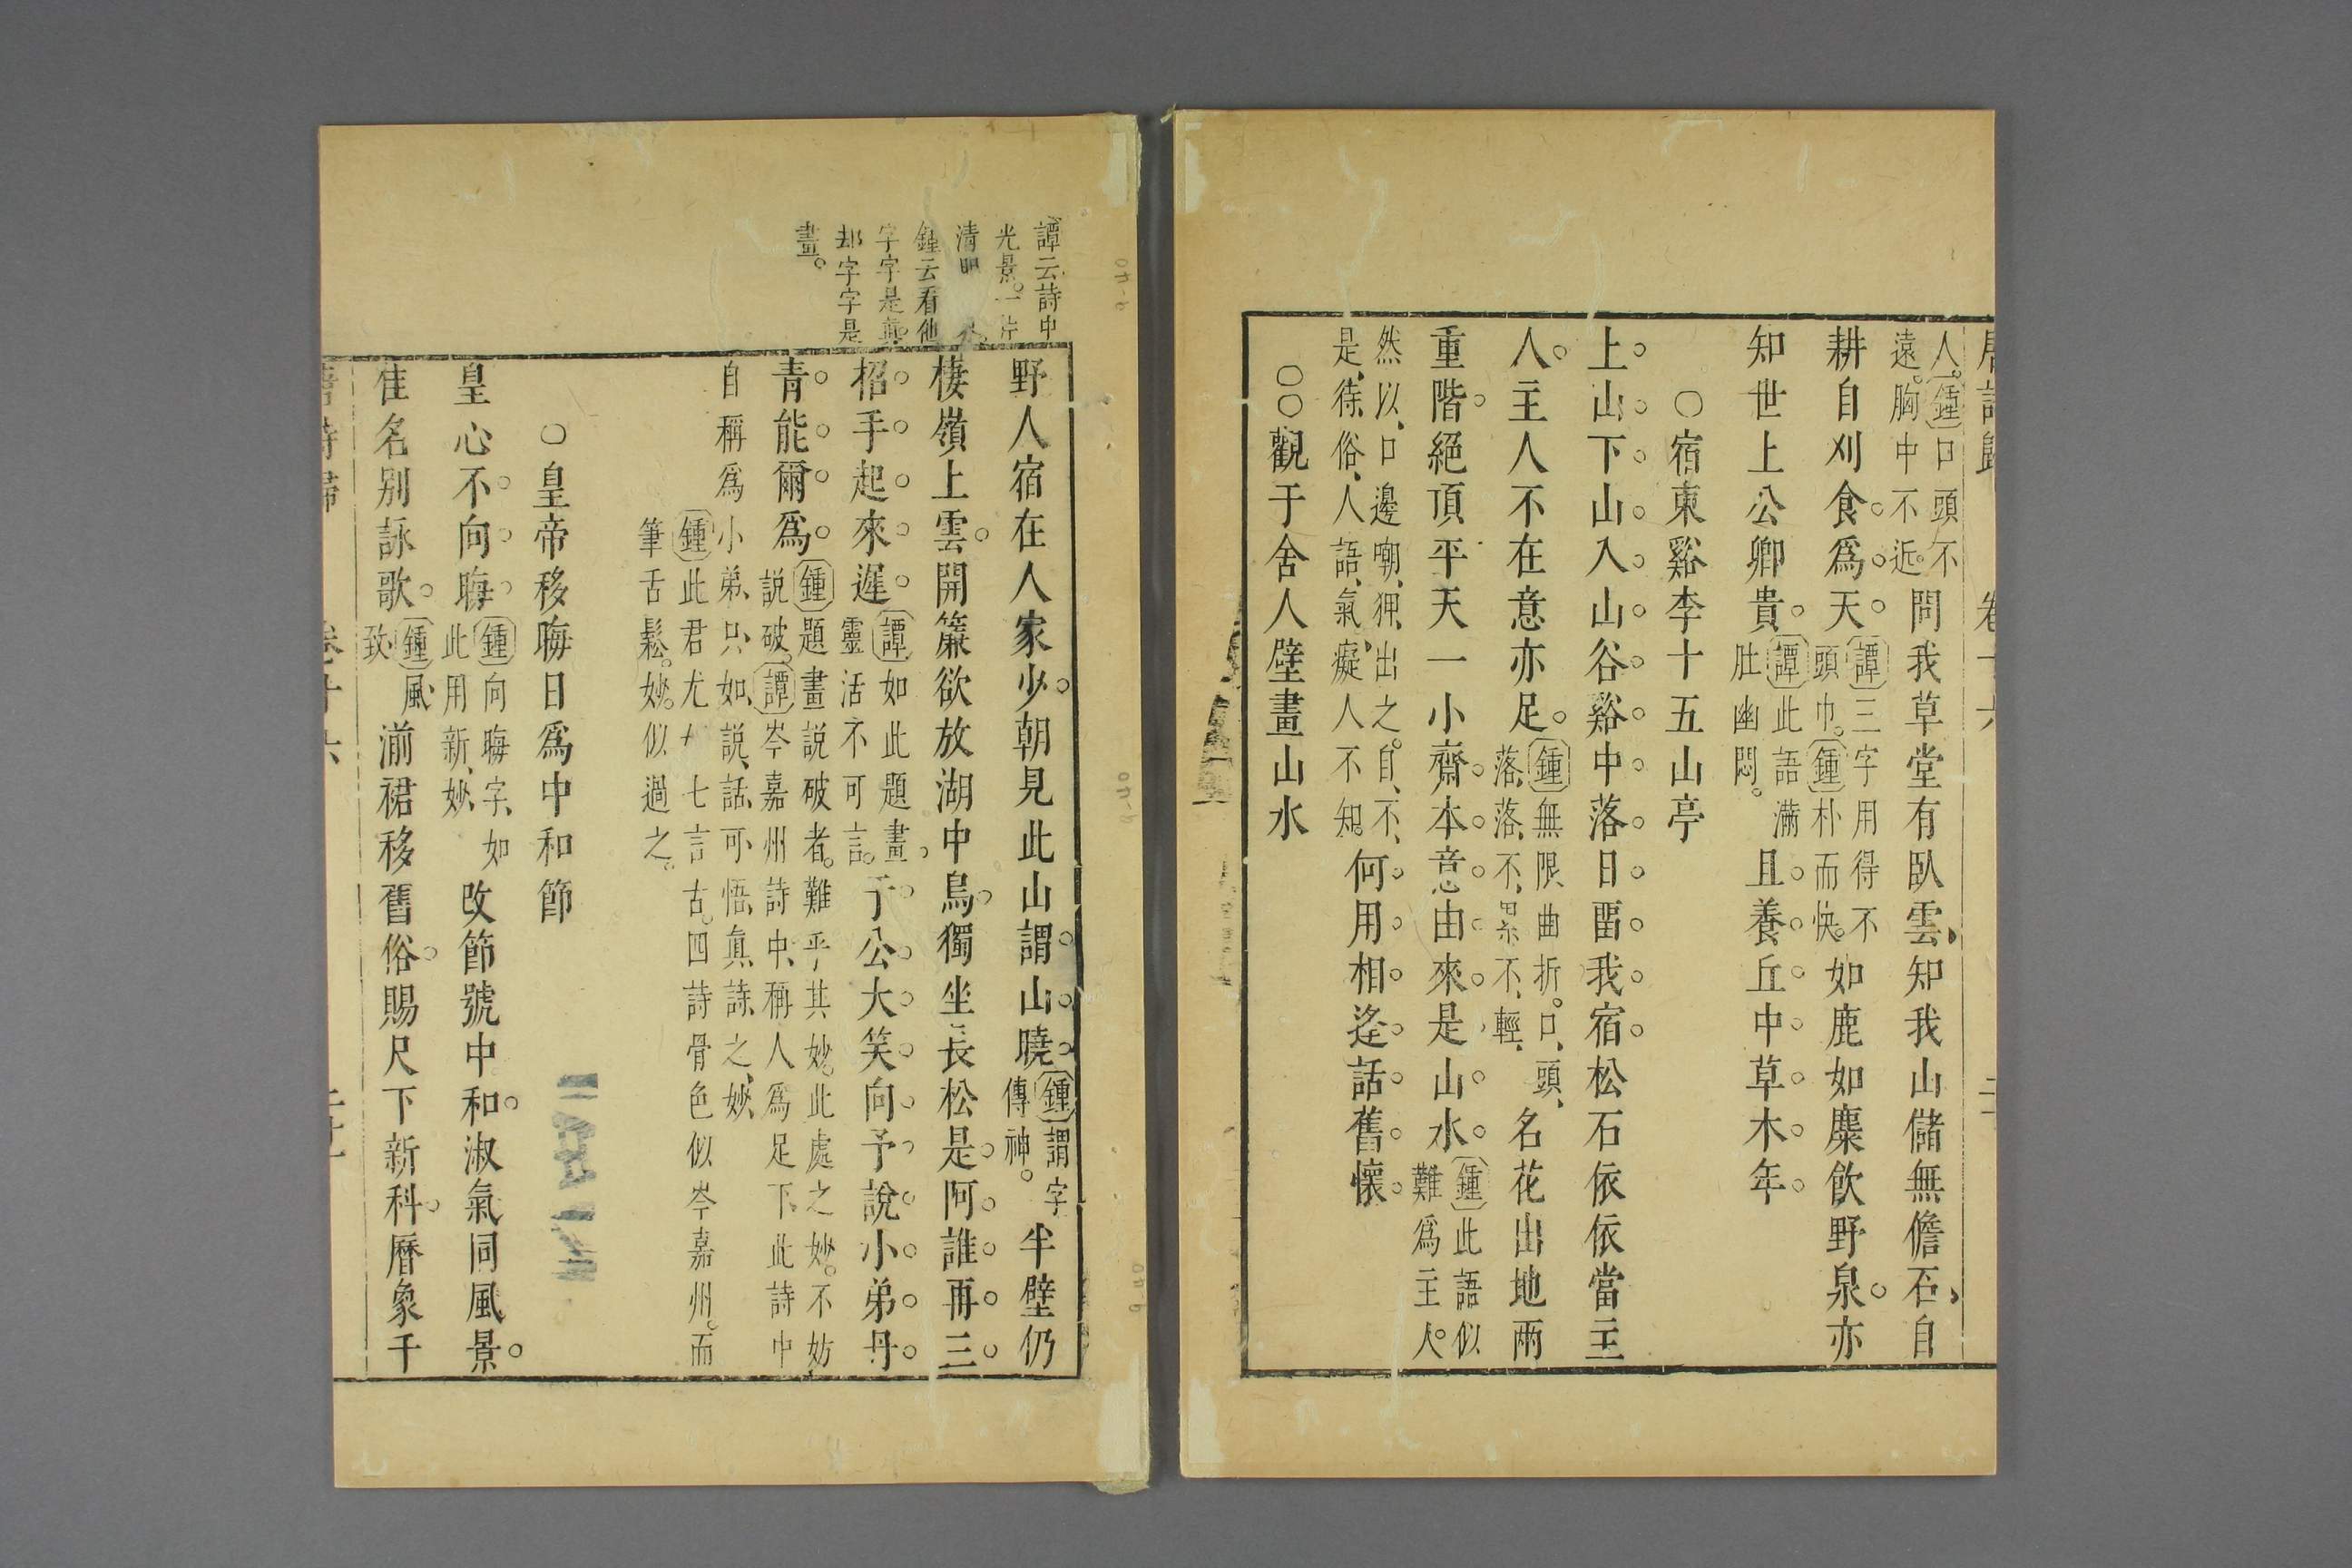 唐詩歸 卷十六
人。鍾口頭不
遠。胸中不近。
問我草堂有臥雲、知我山儲無儋石、自
耕自刈食。爲。天。
譚三字用得不
頭巾。鍾朴而快。
如鹿如麋飲野泉。亦
知世上公卿貴。
譚此語滿
肚幽悶。
且。養。丘。中。草。木。年。
○宿東谿李十五山亭
上。山。下。山。入。山。谷。谿。中。落。日。畱。我。宿。松石依依當主
人。主人不在意亦足。
鍾無限曲折。口、頭、
落、落、不、累、不、輕、
名花出地兩
重階。絕頂平天一小齋。本。意。由。來。是山。水。
鍾此語似
難爲主人。
然以、口邊嘲、狎、出之。自、不、
是、待、俗、人語、氣。癡人人不知。
何。用。相。逢。話。舊。懷。
○○觀于舍人壁畫山水
譚云詩中
光景。一片
清明
鍾云看他
字字是真。
却字字是
畫。
野人宿在人家少。朝見此山謂。山。曉。
鍾謂字
傳神。
半壁仍
棲嶺上雲。開簾欲放湖中鳥。獨坐長松是。阿。誰。再。三。
招。手。起。來。遲。
譚如此題畫、
靈活不可言。
于。公。大。笑。向。予。說。小。弟。丹。
青。能。爾。爲。
鍾題畫說破者。難乎其妙。此處之妙。不妨
説破。譚岑嘉州詩中、稱人爲足下、此詩中
自稱爲小弟、只、如、説、話、可、悟、真、詩、之、妙、
鍾此君尤 七言古。四詩骨色似岑嘉州。而
筆舌鬆。妙。似過之。
○皇帝移晦日爲中和節
皇心不。向。晦。
鍾向晦字、如
此用新、妙、
改節號中和。淑氣同風景。
佳名别詠歌。
鍾風
致
湔裙移舊俗。賜尺下新科。曆象千
唐詩歸 卷十六 二十一